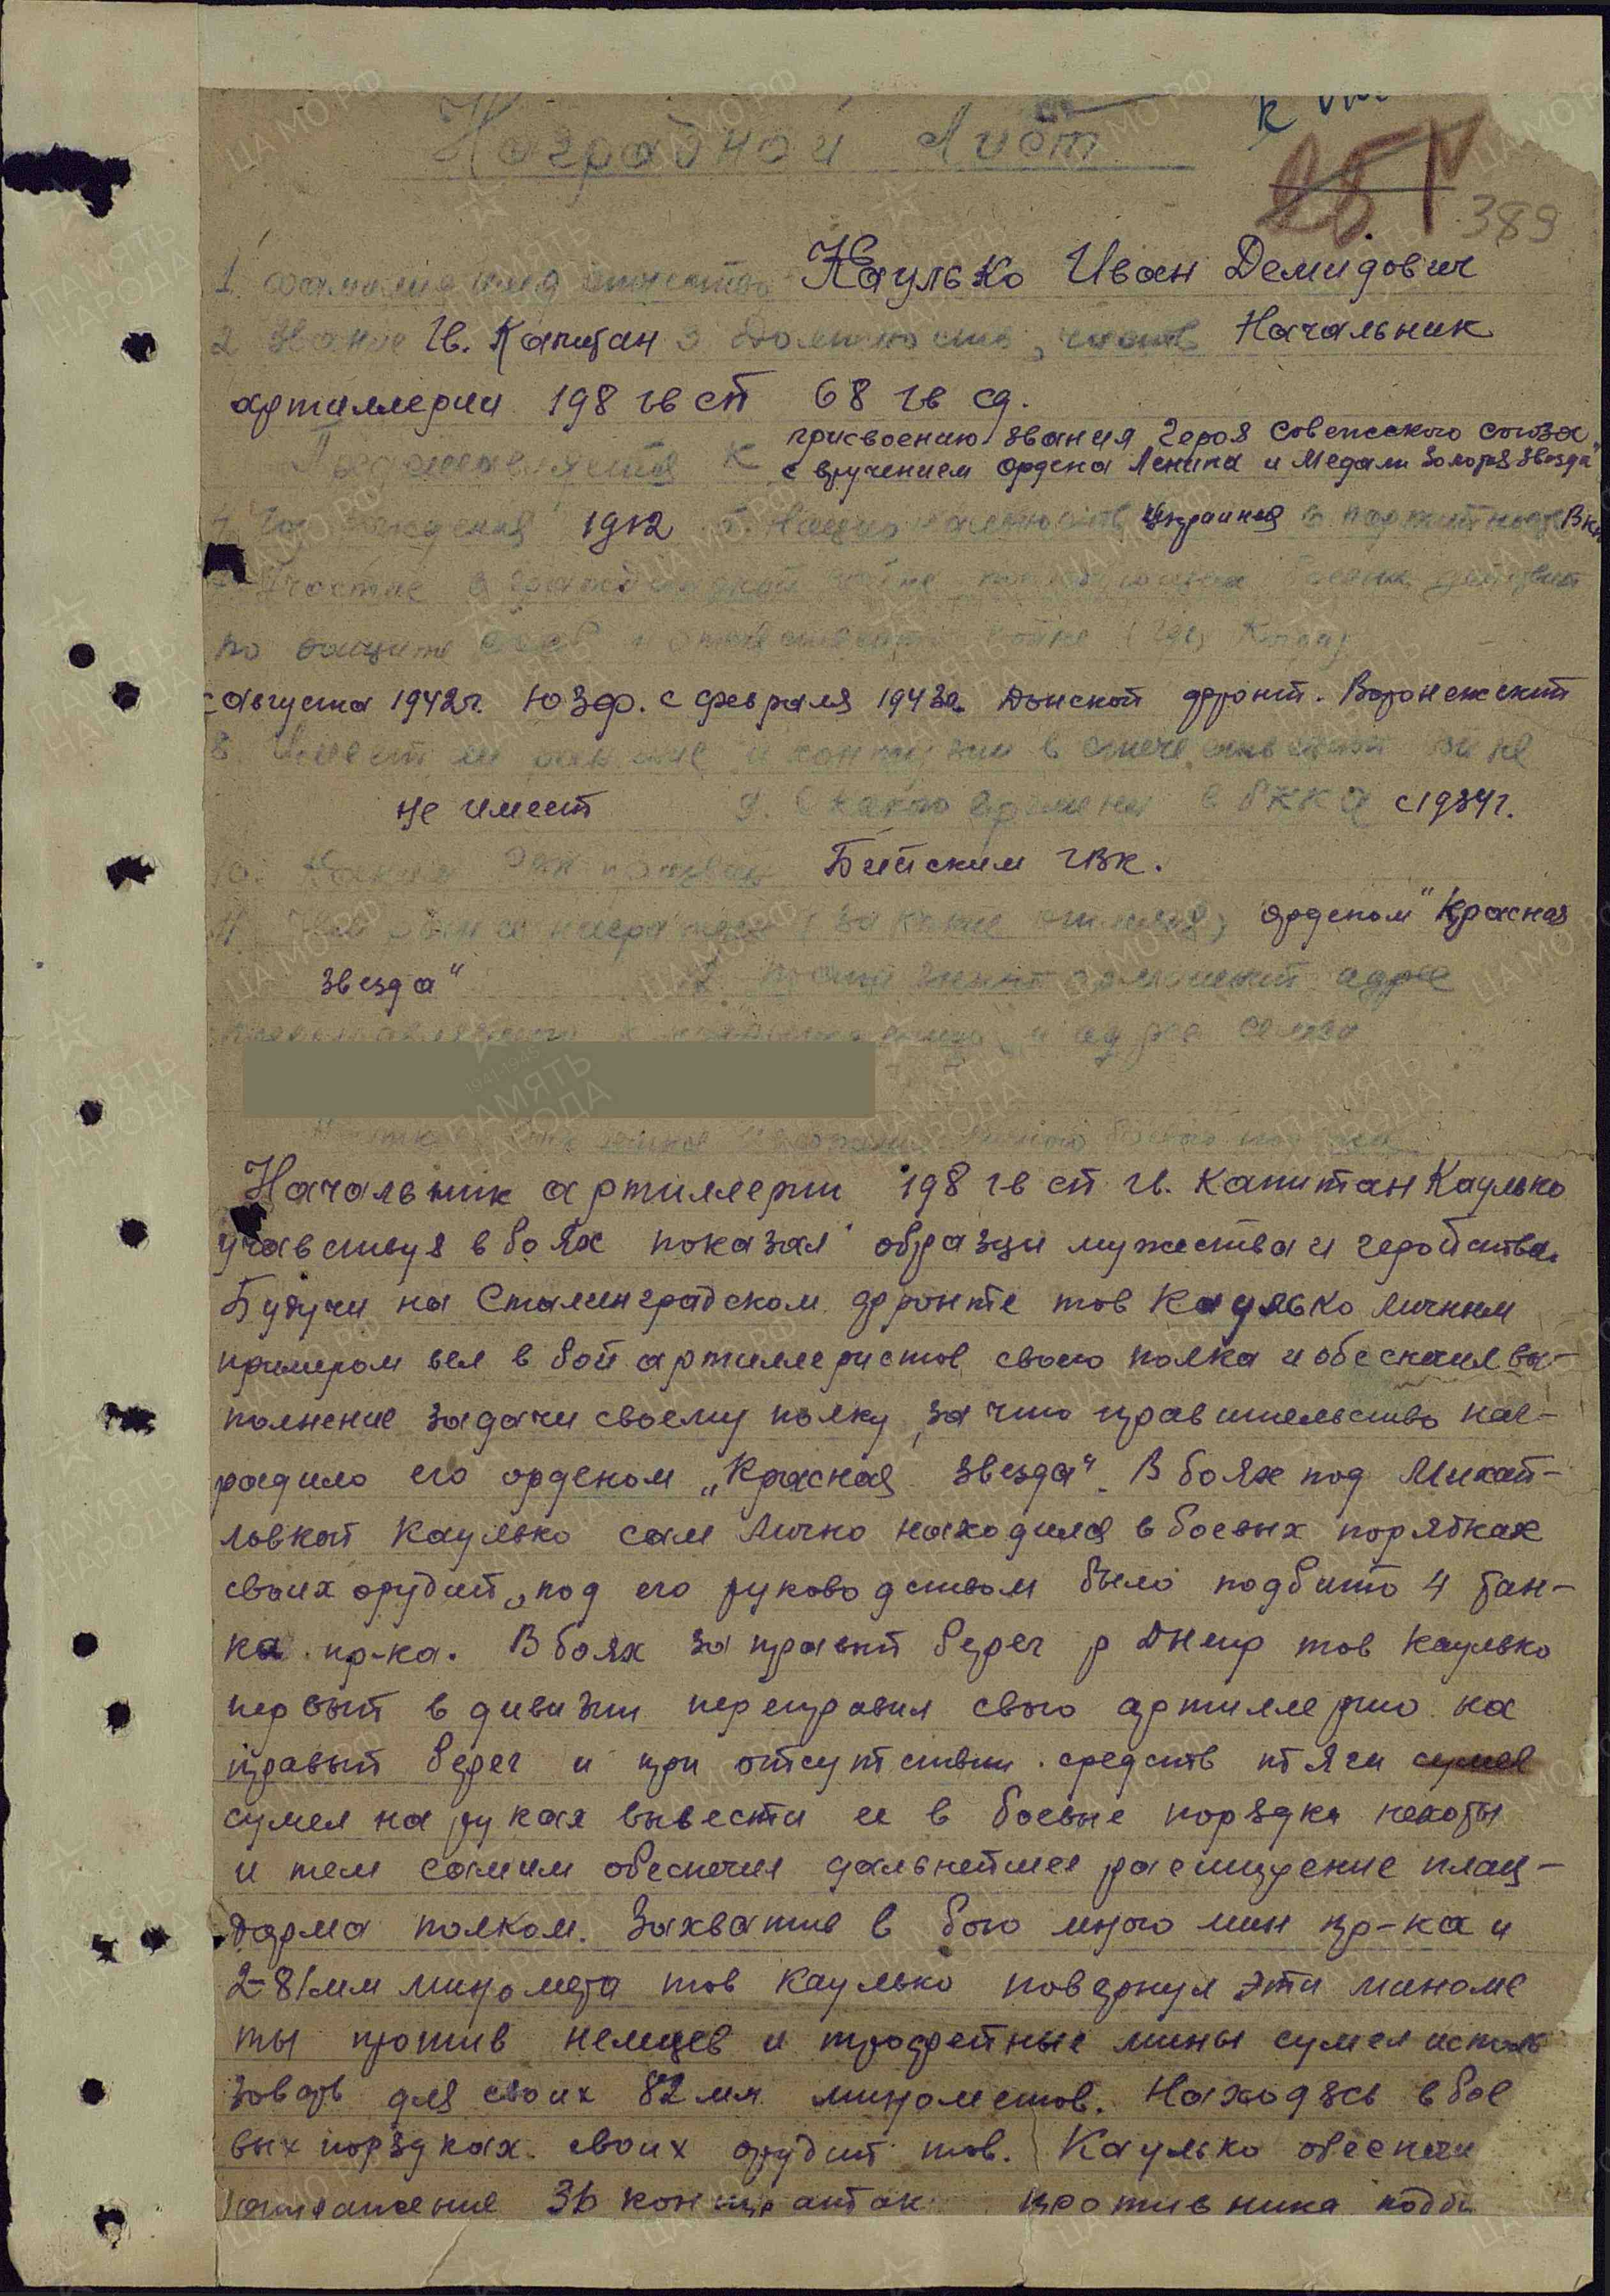 Наградной Лист
389
1. Фамилия имя отчество Каулько Иван Демидович
2 Звание Гв. Капитан 3 Должность, часть Начальник
артиллерии 198 гв сп 68 гв сд.
присвоению звания Героя Советского союза
Представляется к с вручением Ордена Ленина и Медали Золотая Звезда"
4 Год рождения 1912 5. Национальность Украинец 6 партийность
7 Участие в гражданской войне последующих боевых действиях
по защите СССР и отечественной войне (где, когда)
с августа 1942г. ЮЗФ. с февраля 1943г. Донской фронт. Воронежский
8. Имеет ли ранение и контузии в отечественной войне
не имеет 9. С какого времени в РККА с 1934г.
10. Каким РВК призван Бийским ГВК.
11 Чем ранее награжден (за какие отличия) орденом "Красная
звезда" 12 постоянный домашний адрес
представляемого к награждению и адрес семьи
Начальник артиллерии 198 гв сп гв. капитан Каулько
участвуя в боях показал образцы мужества и геройства.
Будучи на Сталинградском фронте тов Каулько личным
примером вел в бой артиллеристов своего полка и обеспечил вы-
полнение задачи своему полку, за что правительство наг-
радило его орденом „Красная звезда". В боях под Михай-
ловкой Каулько сам лично находился в боевых порядках
своих орудий, под его руководством было подбито 4 тан-
ка пр-ка. В боях за правый берег р Днепр тов Каулько
первый в дивизии переправил свою артиллерию на
правый берег и при отсутствии средств тяги сумел
сумел на руках вывести ее в боевые порядки пехоты
и тем самым обеспечил дальнейшее расширение плац-
дарма полком. Захватив в бою много мин пр-ка и
2-81мм миномета тов Каулько повернул эти миноме
ты против немцев и трофейные мины сумел исполь
зовать для своих 82 мм минометов. Находясь в бое
вых порядках своих орудий тов. Каулько обеспечи
отражение 36 контратак противника подби